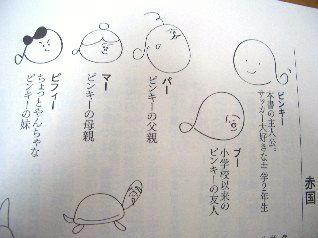 赤国
ピンキー
本書の主人公。
サッカー大好きな
学2年生
プー
小学校以来の
ピンキーの友人
パー
ピンキーの父親
マー
ピンキーの母親
ピフィー
ちょっとやんちゃな
ピンキーの妹